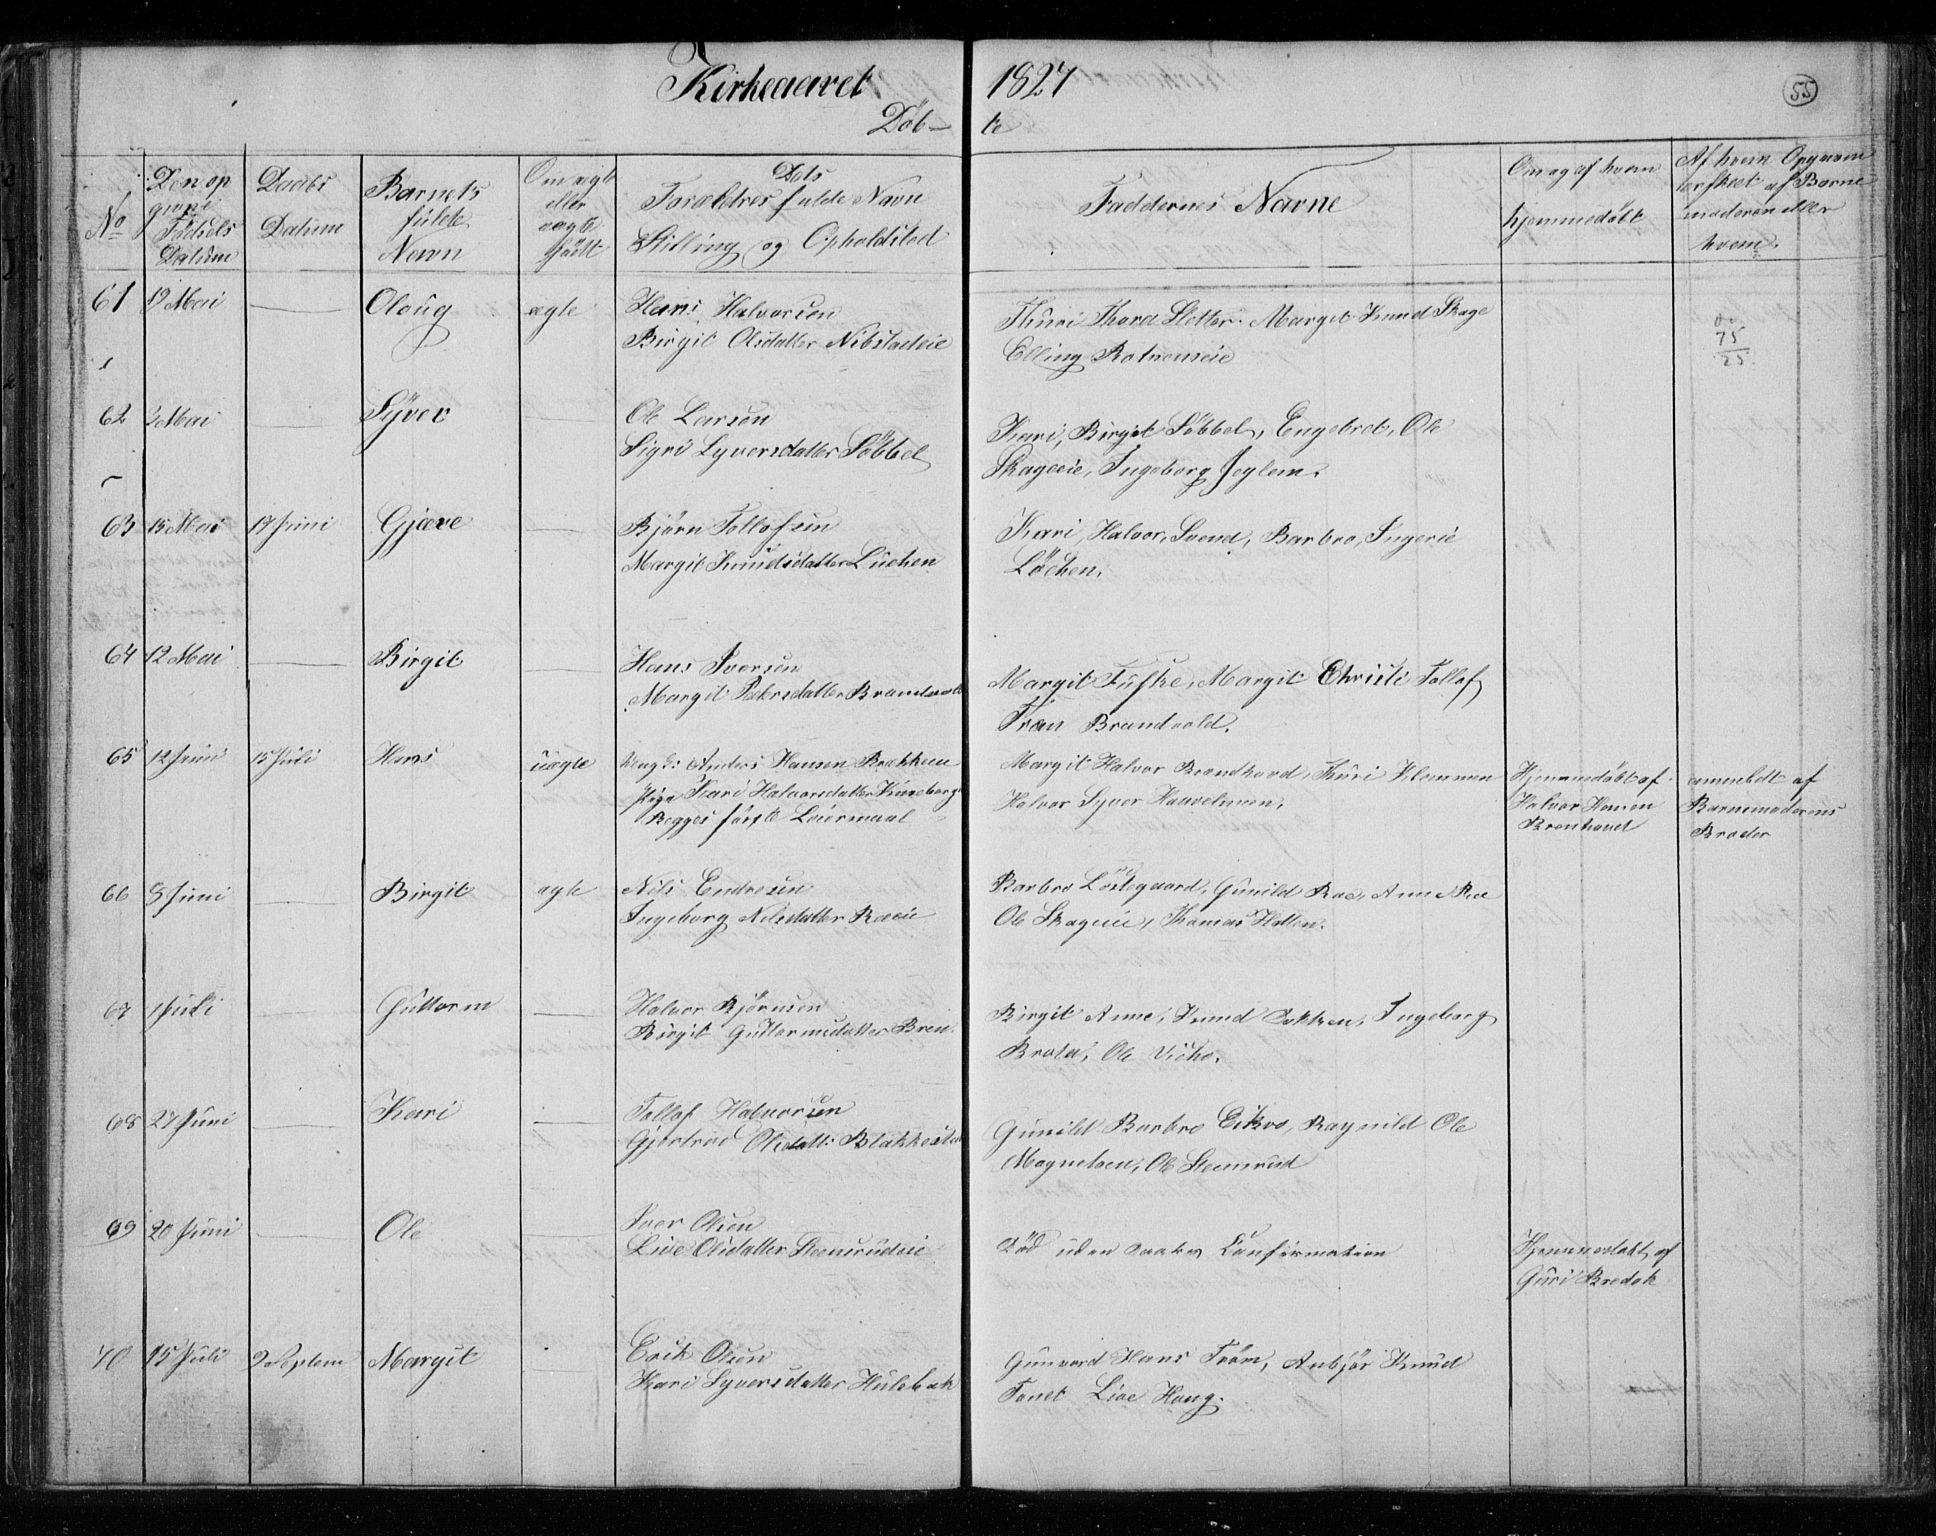 Kirkeaaret 1827
55
Døb- te
No
Den op
givne
Fødsels
Datum
Daabs
Datum
Barnets
fulde
Navn
Om ægte
eller
uægte
født
Dets
Forældres fulde Navn
Stilling og Opholdsted
Faddernes Navne
Om og af hvem
hjemmedøbt
Af hvem Opgivom
modoren eller
hvem.
61 19 Mai Oloug ægte Hans Halvorsen
Birgit Olsdatter Nibstadeie
Thuri Thora Sletten. Margit Knud Skage
Elling Rotnemeie
75
25
62 Mai Syver Ole Larsen
Sigri Syversdatter Søbbel
Kari, Birgit Søbbel, Engebret, Ole
Skageeie, Ingeborg Jeglem.
63 15 Mai 17 Juni Gjæve Bjørn Tollofsen
Margit Knudsdatter Luchen
Kari, Halvor, Svend, Barbro, Ingerie
Løchen.
64 12 Mai Birgit Hans Iversen
Margit Pedersdatter Brandvold
Margit Tufte, Margit Christi Tollof
Iver Brandvold.
65 12 Juni 15 Juli Hans uægte Ung K: Anders Hansen Brakken
Pige Kari Halvorsdatter Kineberg
Begges første Leiermaal
Margit Halvor Brandhovd, Thuri Klemmen
Halvor Syver Hauvelmoen.
Hjemmedøbt af
Halvor Hansen
Brenhovd
anmeldt af
Barnemoderens
Broder
66 8 Juni Birgit ægte Nils Endresen
Ingeborg Nilsdatter Raeeie
Barbro Løstegaard, Gunild Rae, Anne Rae
Ole Skageeie, Thomas Hatten.
67 1 Juli Guttorm Halvor Bjørnsen
Birgit Guttormsdatter Bren
Birgit Anne, Knud Bakken, Ingeborg
Brata, Ole Viko.
68 27 Juni Kari Tollof Halvorsen
Gjertrud Olsdatt: Blakkestad
Gunild Barbro Eikro, Raynild Ole
Magnetoen, Ole Steensrud
69 20 Juni Ole Iver Olsen
Live Olsdatter Steensrudeie
Død uden Daabens Confirmation
Hjemmedøbt af
Guri Bredok
70 15 Juli 9 Septem Margit Erik Olsen
Kari Syversdatter Hulebak
Gunvord Hans Trøm, Anbjør Knud
Tovet Live Haug.